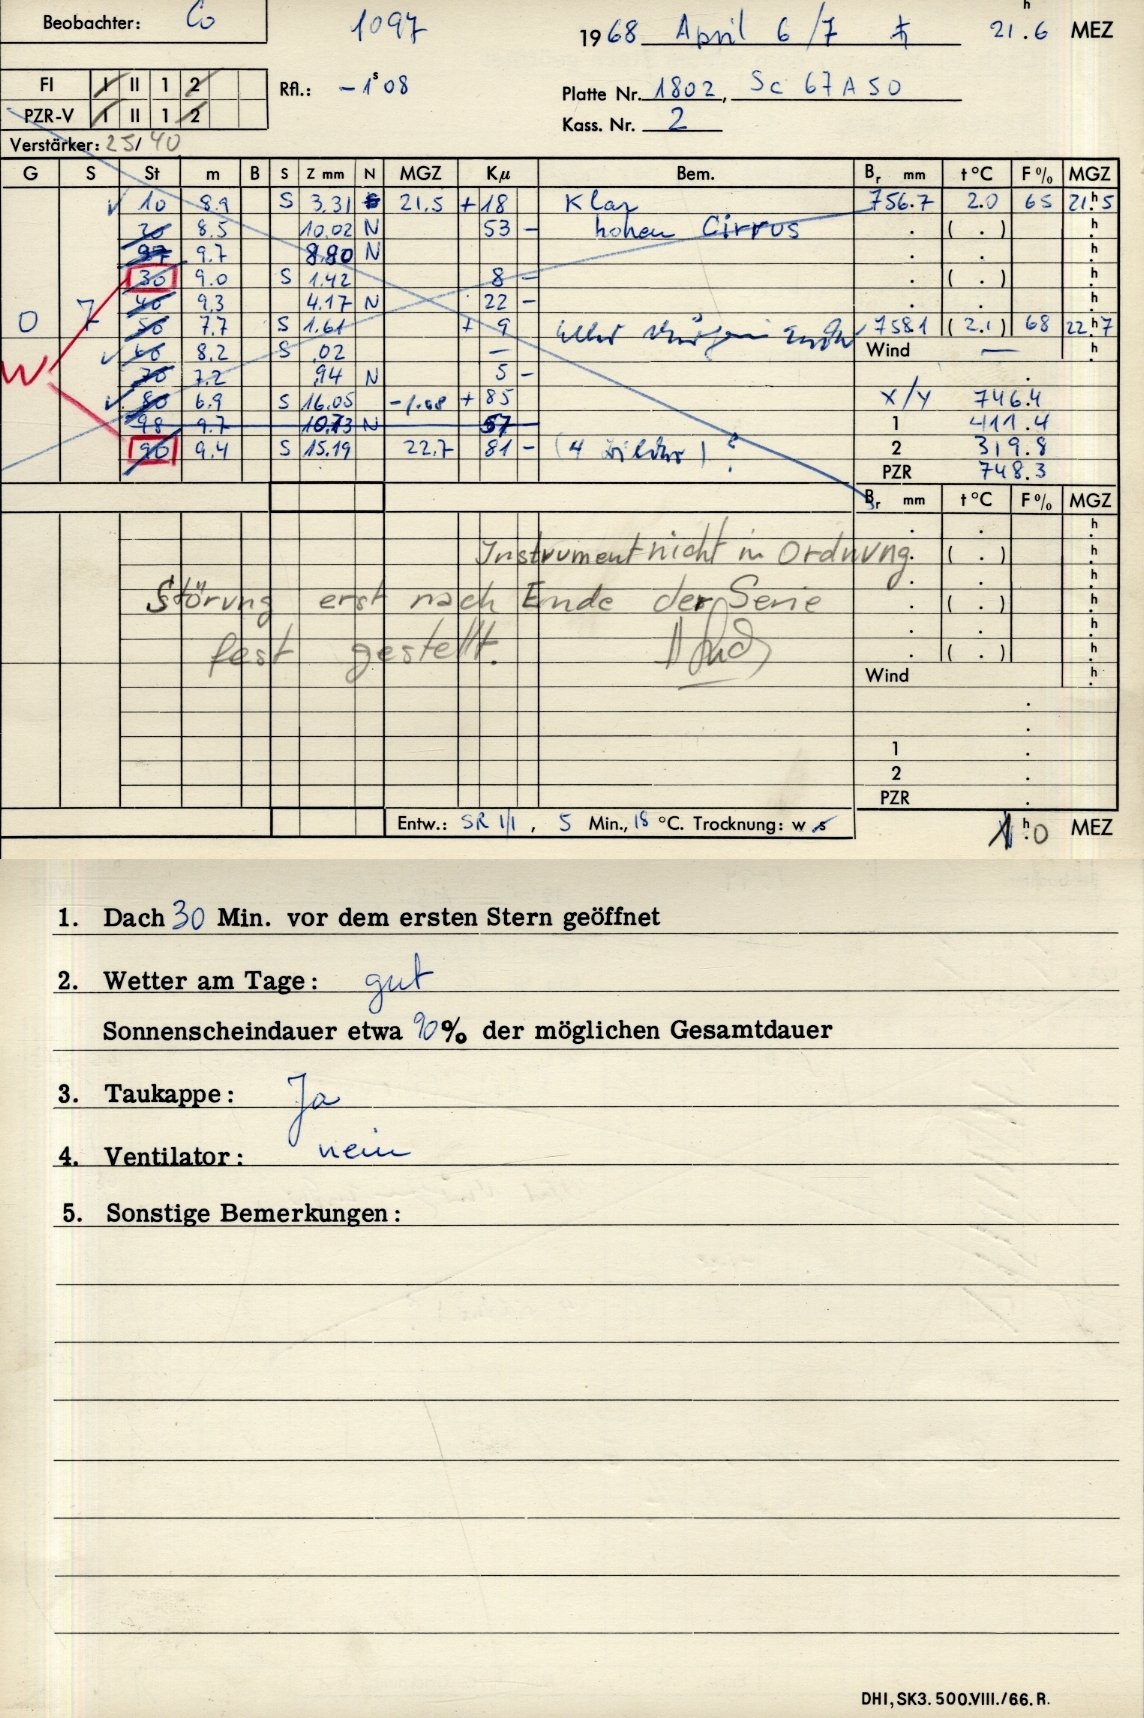 Beobachter: Co 1097 1968 April 6/7 ♄ 21h.6 MEZ
FI I II 1 2 Rfl.: -1s08 Platte Nr. 1802, Sc 67A50
PZR-V I II 1 2 Kass. Nr. 2
Verstärker: 25/40
G S St m B S Z mm N MGZ Kμ Bem. Br mm t °C F % MGZ
10 8.9 S 3.31 21.5 +18 Klar 756.7 2.0 65 21h5
20 8.5 10.02 N 53 - hohen Cirrus
97 9.7 8.80 N
30 9.0 S 1.42 8 -
40 9.3 4.17 N 22 -
0 7 50 7.7 S 1.61 + 9 758.1 (2.1) 68 22h7
60 8.2 S .02 — Wind —
W 70 7.2 .94 N 5 -
80 6.9 S 16.05 -1.08 +85 X/Y 746.4
98 9.7 10.73 N 57 1 411.4
90 9.4 S 15.19 22.7 81 - (4 Bilder) ? 2 319.8
PZR 748.3
Br mm t °C F % MGZ
Instrument nicht in Ordnung
Störung erst nach Ende der Serie
fest gestellt.
Wind
1
2
PZR
Entw.: SR 1/1, 5 Min., 18 °C. Trocknung: w s 1h.0 MEZ
1. Dach 30 Min. vor dem ersten Stern geöffnet
2. Wetter am Tage: gut
Sonnenscheindauer etwa 90% der möglichen Gesamtdauer
3. Taukappe: Ja
4. Ventilator: nein
5. Sonstige Bemerkungen:
DHI, SK3. 500.VIII./66. R.